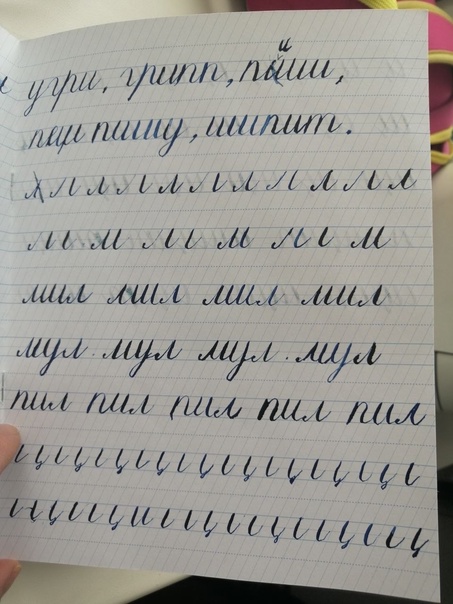 угри, грипп, пиши,
пишу, шипит.
л л л л л л л л л л
л м л м л м
мил мил мил мил
мул. мул мул. мул
пил пил пил пил пил